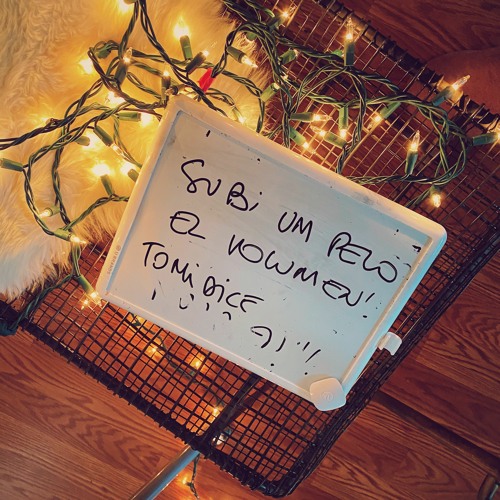 SUBI UM PELO
EL VOLUMEN!
TOMIDICE